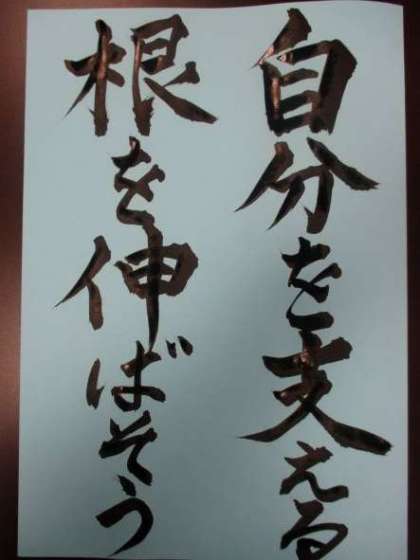 自分を支える
根を伸ばそう